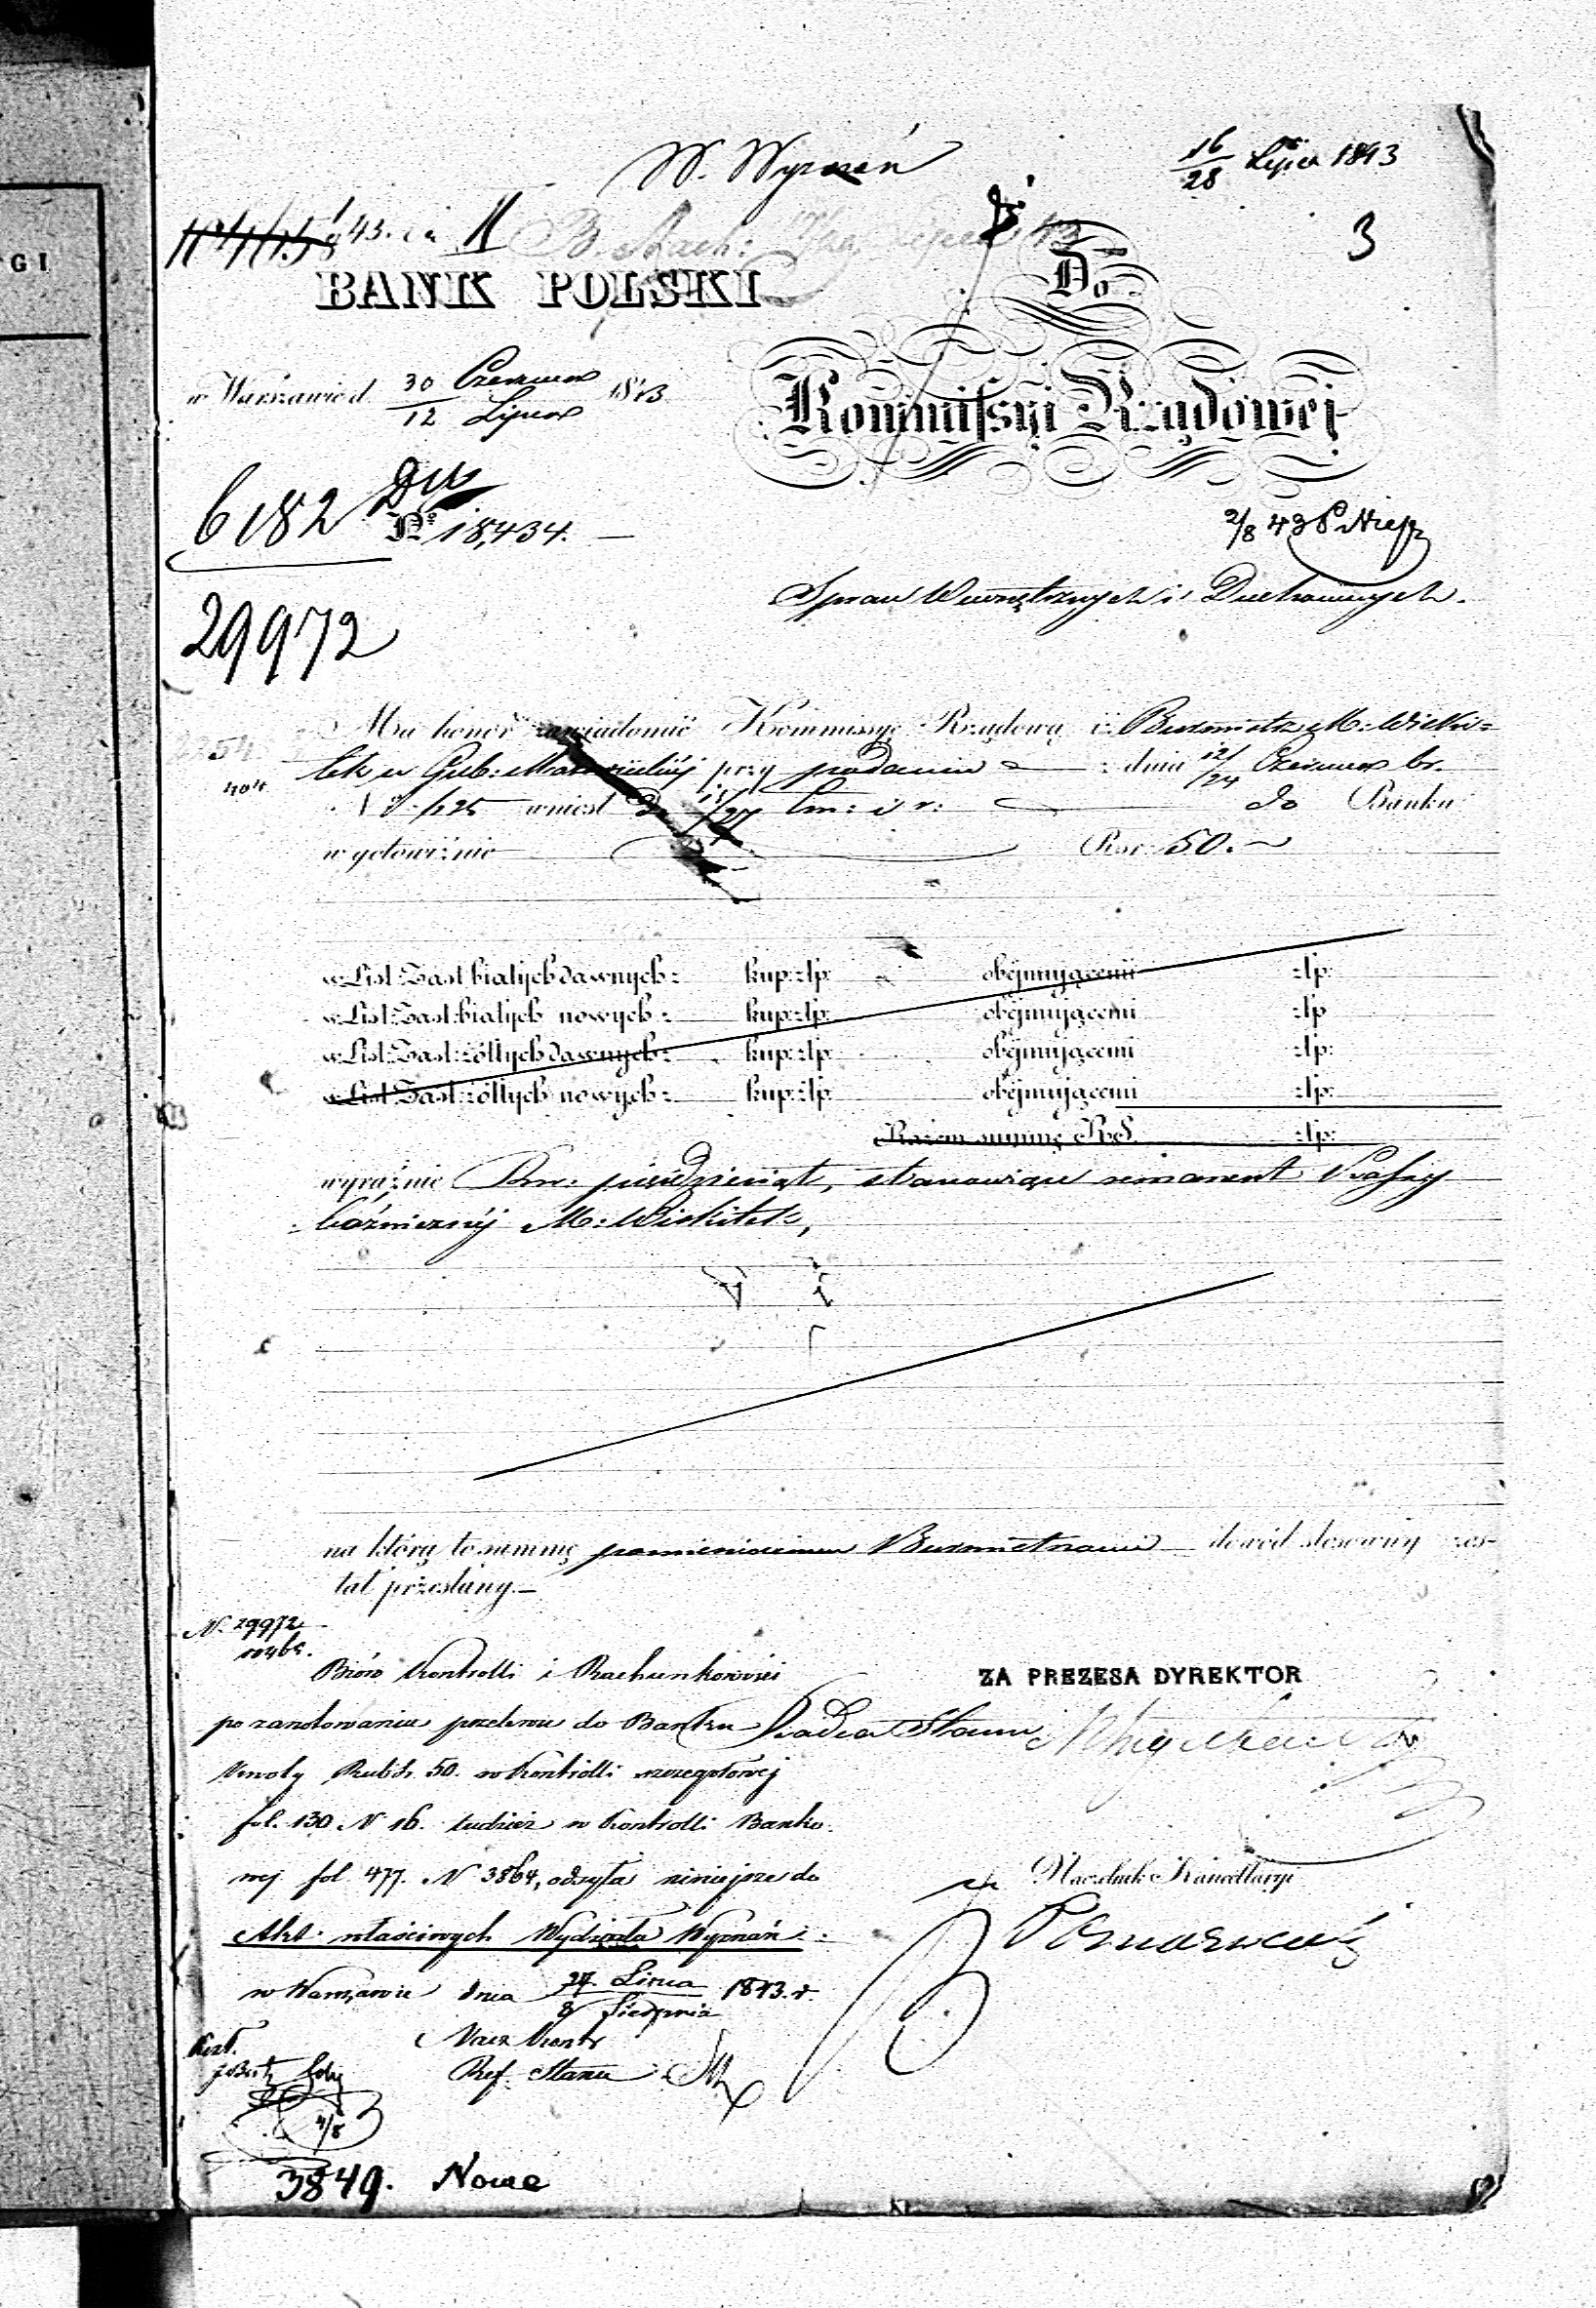 GI
W. Wyznań
16/28 Lipca 1843
43.
B. Rach:
3
BANK POLSKI
Do
Kommissyi Rządowej
w Warszawie d. 30 Czerwca / 12 Lipca 1843
6182
No 18,434.
2/8 43
Spraw Wewnętrznych i Duchownych.
29972
Ma honor zawiadomić Kommissyę Rządową iż Burmistrz M: Wiski=
tek w Gub: Mazowieckiej przy podaniu : dnia 12/24 Czerwca br.
No 125 wniósł bm: i r: do Banku
w gotowiźnie Rsr: 50.
w List: Zast: białych dawnych: kup: złp: obejmującemi złp:
w List: Zast: białych nowych: kup: złp: obejmującemi złp:
w List: Zast: żółtych dawnych: kup: złp: obejmującemi złp:
w List: Zast: żółtych nowych: kup: złp: obejmującemi złp:
Razem summę RS. złp:
wyraźnie Rsr: pięćdziesiąt, stanowiące remanent Kassy
bóżnicznéj M: Wiskitek,
na którą to summę pomienionemu Burmistrzowi dowód stosowny zos-
tał przesłany.
N. 29972
Bióro Kontrolli i Rachunkowości
ZA PREZESA DYREKTOR
po zanotowaniu przelewu do Banku
Radca Stanu
kwoty Rubsr. 50. w Kontrolli szczegółowej
fol. 130 N 16. tudzież w Kontrolli Banko-
wej fol 477. N 3864, odsyła niniejsze do
Naczelnik Kancellaryi
Akt właściwych Wydziału Wyznań
w Warszawie dnia 27 Lipca / 8 Sierpnia 1843. r.
Nacz Kontr
Ref. Stanu
4/8
3849. Nowe